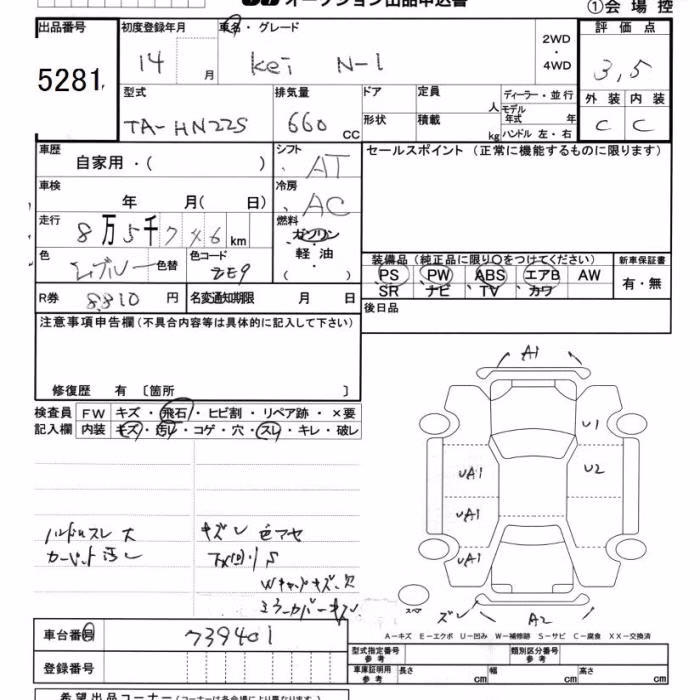 オークション出品申込書
①会場控
出品番号 初度登録年月 車名・グレード 評価点
5281 14 月 Kei N-1 2WD・4WD 3,5
型式 排気量 ドア 定員 人 ディーラー・並行 外装 内装
TA-HN22S 660 cc 形状 積載 kg モデル年式 年 C C
ハンドル 左・右
車歴 シフト セールスポイント(正常に機能するものに限ります)
自家用・( ) AT
車検 年 月( 日) 冷房 AC
走行 8万5千746km 燃料 ガソリン
軽油
( )
色 色替 色コード ZE9
装備品(純正品に限り○をつけてください) 新車保証書
PS PW ABS エアB AW 有・無
SR ナビ TV カワ
R券 8310円 名変通知期限 月 日
後日品
注意事項申告欄(不具合内容等は具体的に記入して下さい)
修復歴 有 〔箇所 〕
検査員 FW キズ・飛石・ヒビ割・リペア跡・×要
記入欄 内装 キズ・汚レ・コゲ・穴・スレ・キレ・破レ
ハンドルスレ大 キズ レ 色アセ
カーペット汚レ 下廻りS
Wキャップキズ欠
ミラーカバーキズレ
A1
U1
UA1 U2
UA1
UA1
スペア
ズレ A2
A-キズ E-エクボ U-凹み W-補修跡 S-サビ C-腐食 XX-交換済
車台番号 739401
登録番号
型式指定番号 参考 類別区分番号 参考
車庫証明用 参考 長さ cm 幅 cm 高さ cm
希望出品コーナー(コーナーは各会場により異なります。)